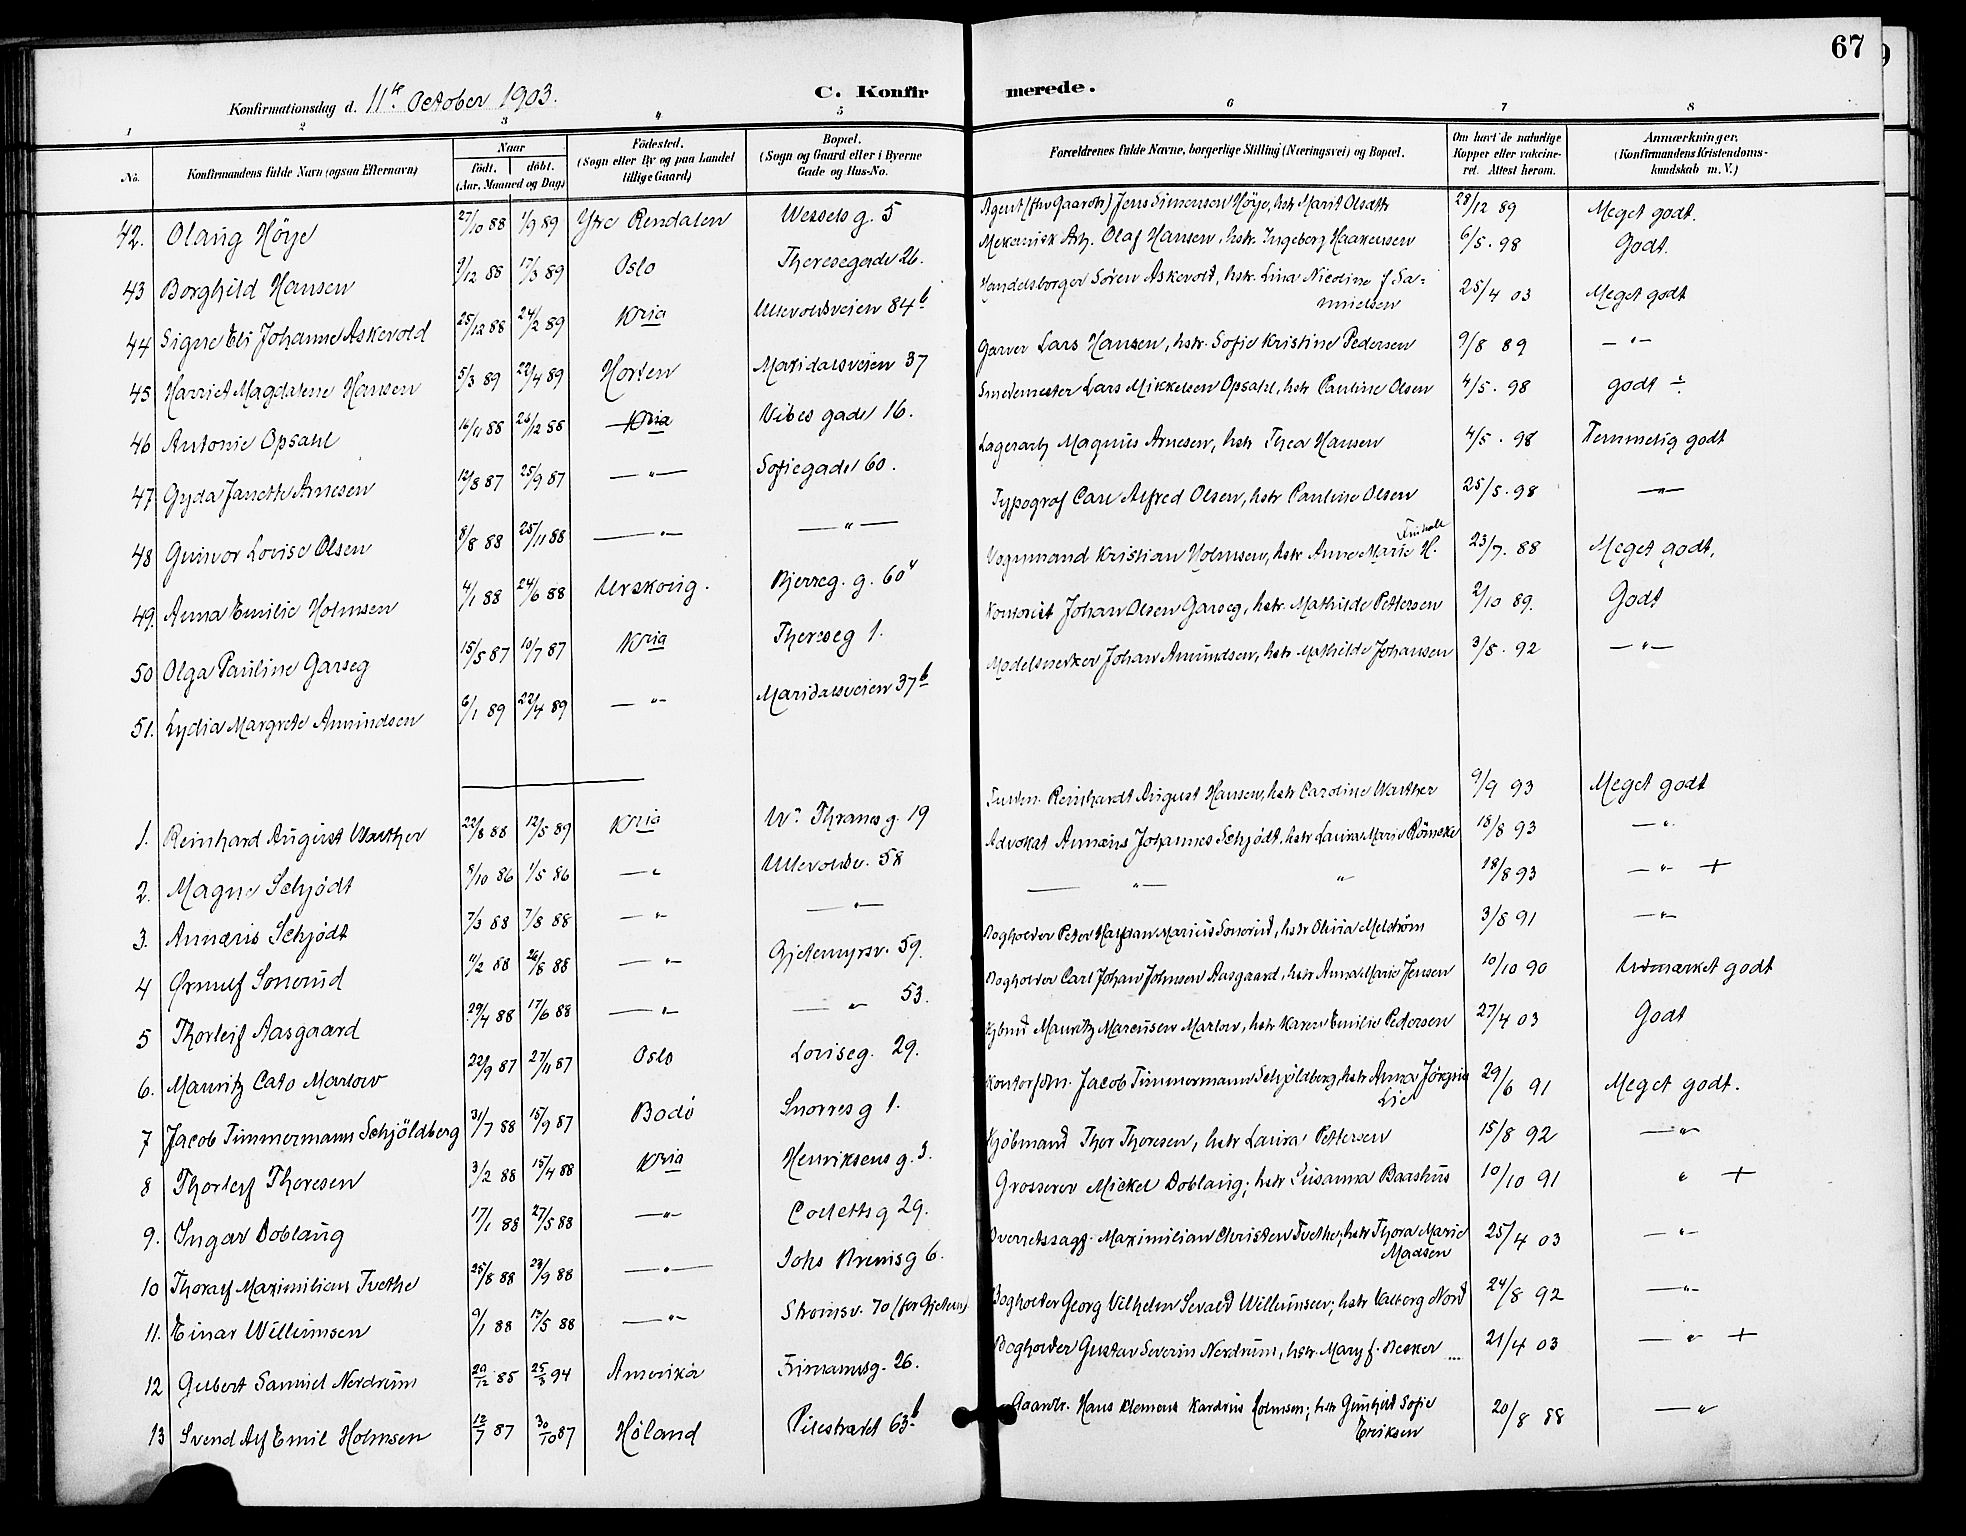 67
Konfirmationsdag d. 11te October 1903.
C. Konfirmerede.
1 2 3 4 5 6 7 8
No.
Konfirmandens fulde Navn (ogsaa Efternavn)
Naar
født. døbt.
(Aar, Maaned og Dag)
Fødested.
(Sogn eller By og paa Landet
tillige Gaard)
Bopæl.
(Sogn og Gaard eller i Byerne
Gade og Hus-No.
Forældrenes fulde Navne, borgerlige Stilling (Næringsvei) og Bopæl.
Om havt de naturlige
Kopper eller vakcine-
ret. Attest herom.
Anmærkninger.
(Konfirmandens Kristendoms-
kundskab m. V.)
42. Olaug Höye 27/10 88 1/9 89 Ytre Rendalen Wessels g. 5 Agent (fhv Gaardb) Jens Simensen Höye, hstr Marit Olsdtr 28/12 89 Meget godt.
43 Borghild Hansen 9/12 88 17/3 89 Oslo Theresegade 26. Mekanisk Arb. Olaf Hansen, hstr. Ingeborg Haakensen 6/5. 98 Godt.
44 Signe Eli Johanne Askevold 25/12 88 24/2 89 Kria Ullevoldsveien 84b Handelsborger Sören Askevold, hstr. Lina Nicoline f Sa-
muelsen 25/4 03 Meget godt
45 Harriet Magdalene Hansen 5/3 89 22/4 89 Horten Maridalsveien 37 Garver Lars Hansen, hstr. Sofie Kristine Pedersen 9/8 89 — " —
46 Antonie Opsahl 16/11 88 26/12 88 Kria Vibes gade 16. Smedemester Lars Mikkelsen Opsahl, hstr Pauline Olsen 4/5. 98 godt ÷
47 Gyda Janette Arnesen 12/8 87 25/9 87 — " — Sofiegade 60. Lagerarb Magnus Arnesen, hstr Thea Hansen 4/5. 98 Temmelig godt
48 Gunvor Lovise Olsen 8/8 88 25/11 88 — " — — " — Typograf Carl Alfred Olsen, hstr Pauline Olsen 25/5. 98 — " —
49. Anna Emilie Holmsen 4/1 88 24/6 88 Urskoug. Bjerreg. g. 60 Vognmand Kristian Holmsen, hstr Anne Marie H. 23/7. 88 Meget godt.
50 Olga Pauline Garseg 15/5 87 10/7 87 Kria Thereseg 1. Kontorist Johan Olsen Garseg, hstr. Mathilde Pettersen 2/10 89. Godt
51. Lydia Margrete Amundsen 6/1 89 22/4 89 — " — Maridalsveien 37b Modelsnekker Johan Amundsen, hstr Mathilde Johansen 3/5. 92 — " —
1. Reinhard August Walther 22/8 88 12/5 89 Kria Wm Thranes g. 19 Reinhardt August Hansen, hstr Caroline Walther 9/9 93 Meget godt
2. Magne Schjödt 8/10 86 1/5 86 — " Ullevoldsv. 58 Advokat Annæus Johannes Schjödt, hstr Laura Marie Rönneke 18/8 93 — "
3. Annæus Schjödt 7/3 88 7/8 88 — " — " — — " — " 18/8 93 — " — +
4 Ørnulf Sonerud 11/2 88 26/8 88 — " Gjetemyrsv. 59. Bogholder Peter Halfdan Marius Sonerud, hstr Olivia Melström 3/8 91 — " —
5 Thorleif Aasgaard 29/4 88 17/6 88 — " — — " 53. Bogholder Carl Johan Johnsen Aasgaard, hstr Anna Marie Jensen 10/10 90 Udmærket godt
6. Mauritz Cato Marlow 22/9 87 27/11 87 Oslo Loviseg. 29. Kjbmd Mauritz Marcusen Marlow, hstr Karen Emilie Pedersen 27/4 03 Godt
7 Jacob Timmermann Schjöldberg 31/7 88 18/9 87 Bodö Snorres g 1. Kontorfdm. Jacob Timmermann Schjöldberg, hstr Anna Jörgine
Lie 29/6 91 Meget godt.
8 Thorleif Thoresen 3/2 88 15/4 88 Kria Henriksens g. 3. Kjöbmand Thor Thoresen, hstr Laura Pettersen 15/8 92 — " —
9. Ingar Doblaug 17/1 88 27/5 88 — " — Colletts g 29. Grosserer Mickel Doblaug, hstr Susanna Baashus 10/10 91 " +
10 Thoralf Maximilian Tvethe 25/8 88 23/9 88 — " — Johs Bruns g 6. Overretssagf. Maximilian Christen Tvethe, hstr Thora Marie
Madsen 25/4 03 — " —
11. Einar Willumsen 9/1 88 17/5 88 — " Stromsv. 70 Bogholder Georg Vilhelm Sevald Willumsen, hstr Valborg Nord 24/8 92 — " —
12 Gilbert Samuel Nordrum 29/12 85 25/3 94 Amerika Frimannsg. 26. Bogholder Gustav Severin Nordrum, hstr. Mary f. Becker ... 21/4 03 — " — +
13 Svend Alf Emil Holmsen 12/7 87 30/10 87 Höland Pilestrædet 63b Gaardbr. Hans Klemens Kardrus Holmsen, hstr Gunhild Sofie
Eriksen 20/8 88 — " —